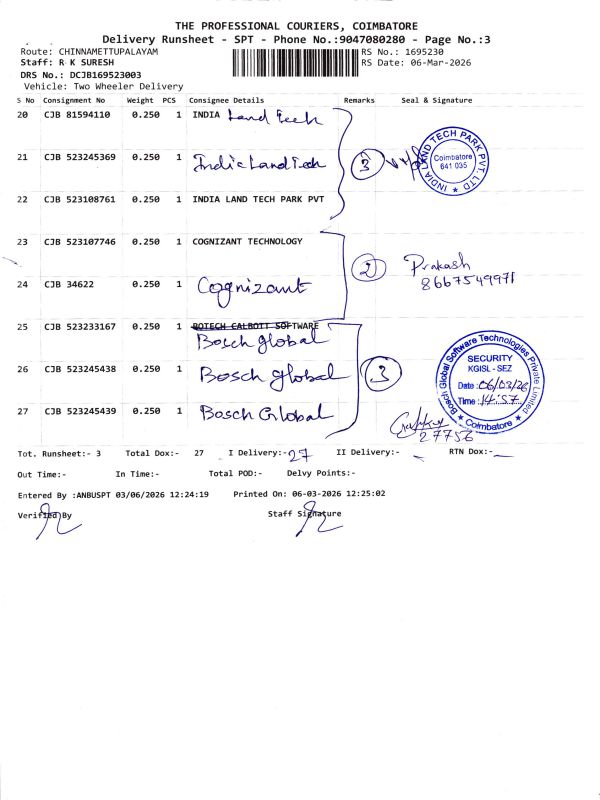 THE PROFESSIONAL COURIERS, COIMBATORE
Delivery Runsheet - SPT - Phone No.:9047080280 - Page No.:3
Route: CHINNAMETTUPALAYAM RS No.: 1695230
Staff: R K SURESH RS Date: 06-Mar-2026
DRS No.: DCJB169523003
Vehicle: Two Wheeler Delivery
S No Consignment No Weight PCS Consignee Details Remarks Seal & Signature
20 CJB 81594110 0.250 1 INDIA Land Tech
21 CJB 523245369 0.250 1 India Land Tech 3
INDIA LAND TECH PARK PVT. LTD ★
Coimbatore
641 035
22 CJB 523108761 0.250 1 INDIA LAND TECH PARK PVT
23 CJB 523107746 0.250 1 COGNIZANT TECHNOLOGY
2 Prakash
8667549971
24 CJB 34622 0.250 1 Cognizant
25 CJB 523233167 0.250 1 BOTECH CALBOTT SOFTWARE
Bosch global
26 CJB 523245438 0.250 1 Bosch global 3
27 CJB 523245439 0.250 1 Bosch Global
Bosch Global Software Technologies Private Limited
★ Coimbatore ★
SECURITY
KGISL - SEZ
Date: 06/03/26
Time: 14:57
27756
Tot. Runsheet:- 3 Total Dox:- 27 I Delivery:- 27 II Delivery:- RTN Dox:-
Out Time:- In Time:- Total POD:- Delvy Points:-
Entered By :ANBUSPT 03/06/2026 12:24:19 Printed On: 06-03-2026 12:25:02
Verified By Staff Signature